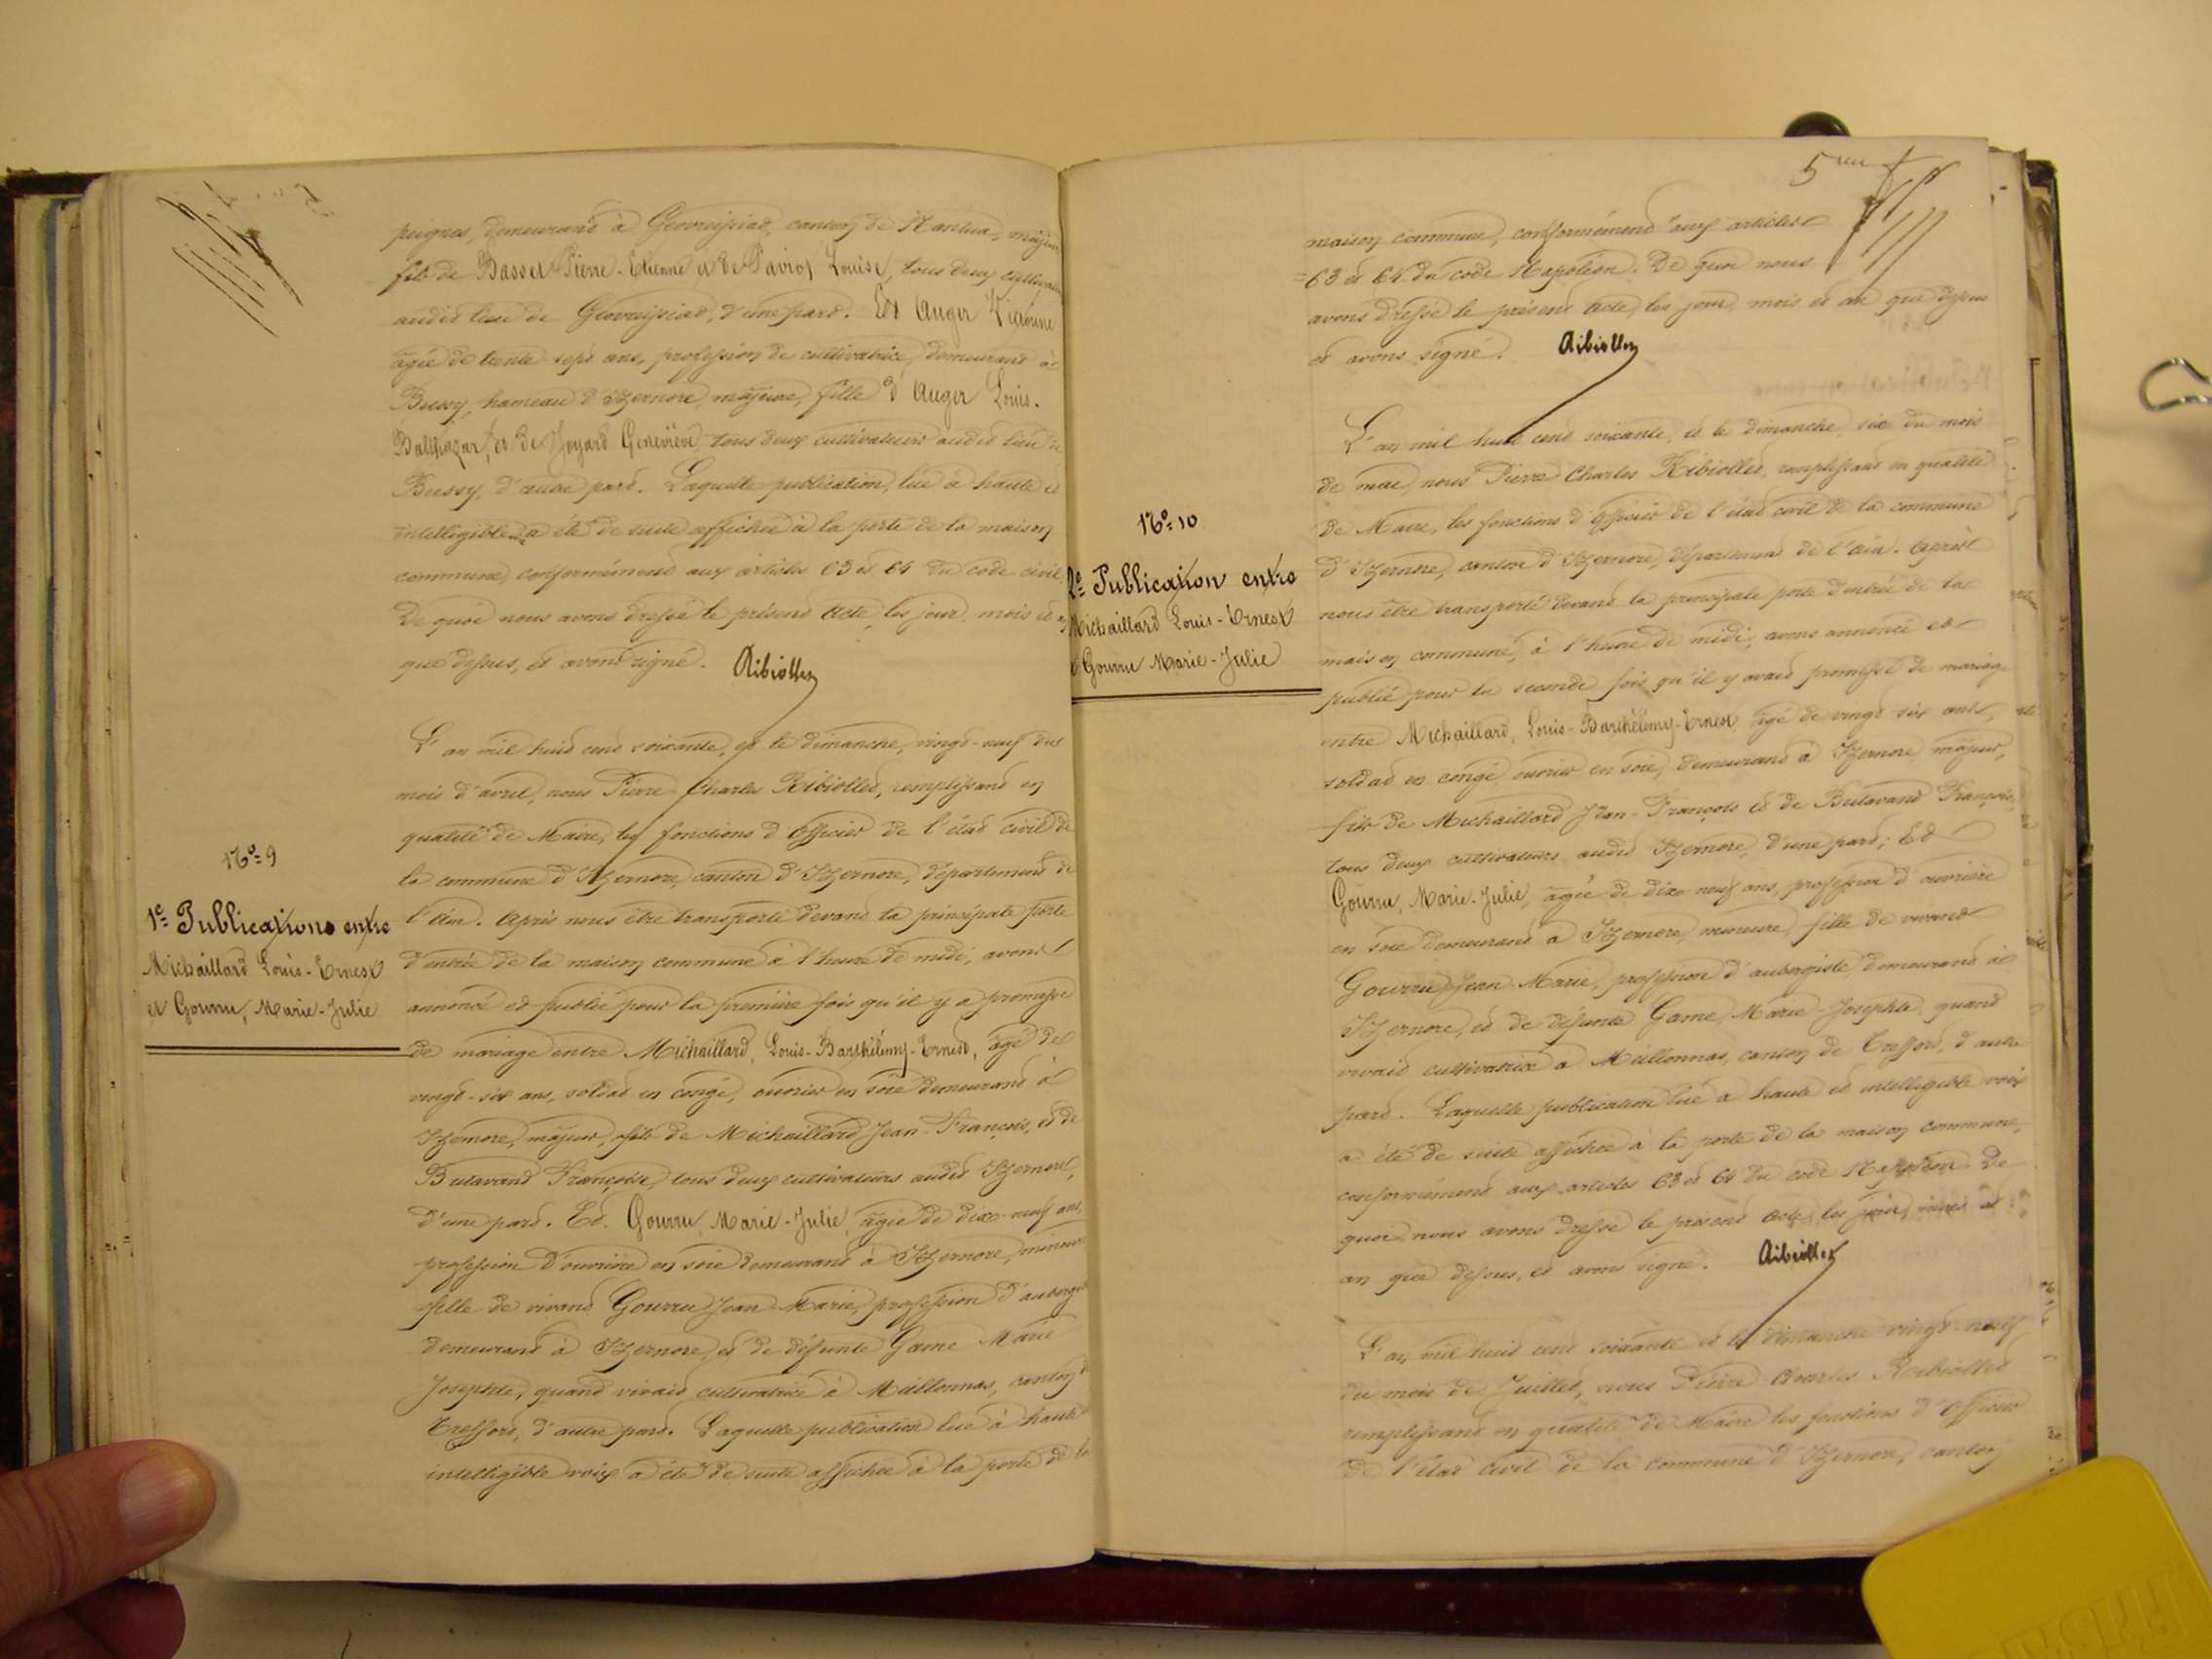 peignes, demeurant à Geovreissiat, canton de Nantua, majeur
fils de Basset Pierre-Etienne et de Paviot Louise, tous deux cultivateurs
audit lieu de Geovreissiat, d'une part. Et Auger Victorine
âgée de trente sept ans, profession de cultivatrice, demeurant à
Bussy, hameau d'Izernore, majeure, fille d'Auger Louis-
Balthazar, et de Joyard Geneviève, tous deux cultivateurs audit lieu de
Bussy, d'autre part. Laquelle publication, lue à haute et
intelligible a été de suite affichée à la porte de la maison
commune, conformément aux articles 63 et 64 du code civil
De quoi nous avons dressé le présent acte, les jour, mois et an
que dessus, et avons signé. Ribiollet
N°= 9
1e= Publications entre
Michaillard Louis-Ernest
et Gourru, Marie-Julie
L'an mil huit cent soixante, et le dimanche, vingt-neuf du
mois d'avril, nous Pierre Charles Ribiollet, remplissant en
qualité de Maire, les fonctions d'officier de l'état civil de
la commune d'Izernore, canton d'Izernore, département de
l'Ain. Après nous être transporté devant la principale porte
d'entrée de la maison commune à l'heure de midi, avons
annoncé et publié pour la première fois qu'il y a promesse
de mariage entre Michaillard, Louis-Barthélémy-Ernest, âgé de
vingt-six ans, soldat en congé, ouvrier en soie demeurant à
Izernore, majeur, fils de Michaillard Jean-François, et de
Butavand Françoise, tous deux cultivateurs audit Izernore,
d'une part. Et Gourru, Marie-Julie, âgée de dix-neuf ans,
profession d'ouvrière en soie demeurant à Izernore, mineure
fille de vivant Gourru Jean-Marie, profession d'aubergiste
demeurant à Izernore, et de défunte Game Marie
Josephte, quand vivait cultivatrice à Meillonnas, canton de
Treffort, d'autre part. Laquelle publication lue à haute et
intelligible voix a été de suite affichée à la porte de la
5me f
maison commune, conformément aux articles
63 et 64 du code Napoléon. De quoi nous
avons dressé le présent acte, les jour, mois et an que dessus
et avons signé. Ribiollet
N°= 10
2e= Publication entre
Michaillard Louis-Ernest
et Gourru Marie-Julie
L'an mil huit cent soixante, et le dimanche six du mois
de mai, nous Pierre Charles Ribiollet, remplissant en qualité
de Maire, les fonctions d'officier de l'état civil de la commune
d'Izernore, canton d'Izernore, département de l'Ain. Après
nous être transporté devant la principale porte d'entrée de la
maison commune, à l'heure de midi, avons annoncé et
publié pour la seconde fois qu'il y avait promesse de mariage
entre Michaillard, Louis-Barthélémy-Ernest âgé de vingt six ans,
soldat en congé ouvrier en soie, demeurant à Izernore, majeur,
fils de Michaillard Jean-François et de Butavand Françoise,
tous deux cultivateurs audit Izernore, d'une part; Et
Gourru, Marie-Julie, âgée de dix neuf ans, profession d'ouvrière
en soie demeurant à Izernore, mineure, fille de vivant
Gourru Jean-Marie, profession d'aubergiste, demeurant à
Izernore, et de défunte Game Marie-Josephte, quand
vivait cultivatrice à Meillonnas, canton de Treffort, d'autre
part. Laquelle publication lue à haute et intelligible voix
a été de suite affichée à la porte de la maison commune,
conformément aux articles 63 et 64 du code Napoléon. De
quoi nous avons dressé le présent acte, les jour, mois et
an que dessus, et avons signé. Ribiollet
L'an mil huit cent soixante et le dimanche vingt-neuf
du mois de Juillet, nous Pierre Charles Ribiollet
remplissant en qualité de Maire les fonctions d'officier
de l'état civil de la commune d'Izernore, canton